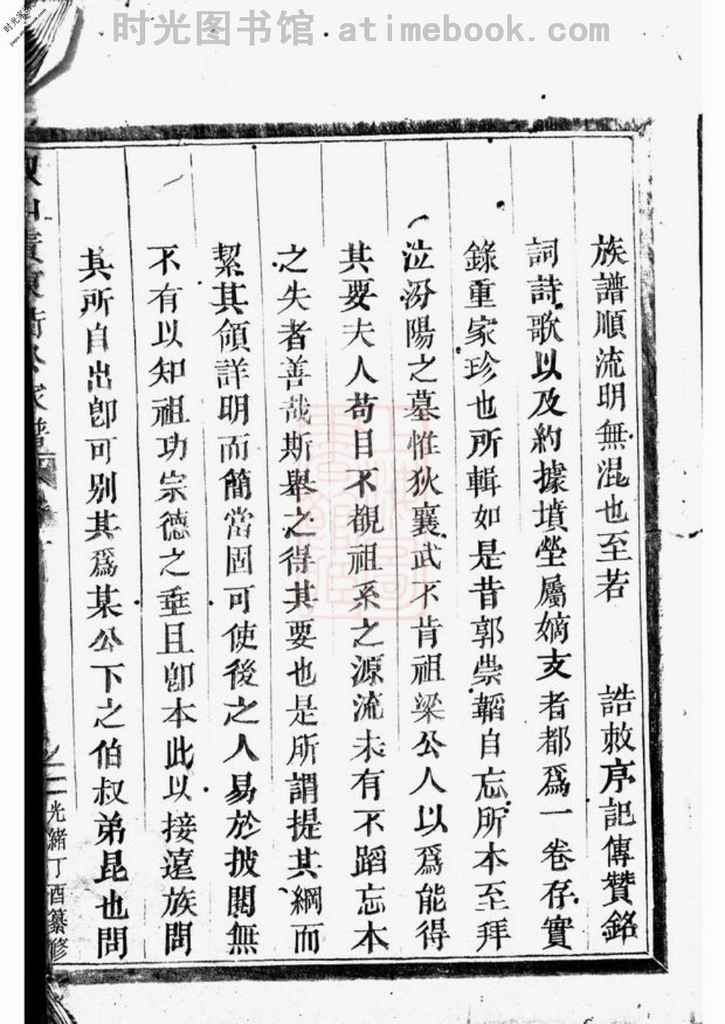 时光图书馆 atimebook.com
族譜順流明無混也至若　誥敕序記傳贊銘
詞詩歌以及約據墳塋屬嫡支者都爲一卷存實
錄重家珍也所輯如是昔郭崇韜自忘所本至拜
泣汾陽之墓惟狄襄武不肯祖梁公人以爲能得
其要夫人苟目不覩祖系之源流未有不蹈忘本
之失者善哉斯舉之得其要也是所謂提其綱而
絜其領詳明而簡當固可使後之人易於披閱無
不有以知祖功宗德之垂且卽本此以接遠族問
其所自出卽可別其爲某公下之伯叔弟昆也問
光緒丁酉纂修